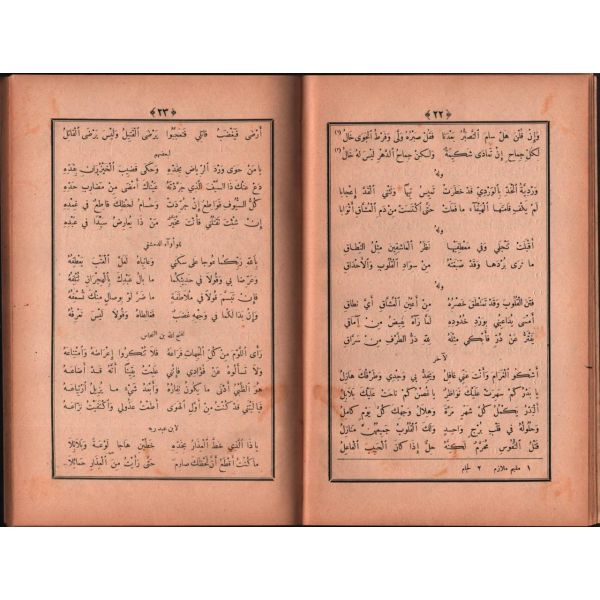 ﴿ ٢٢ ﴾
فَإِن قُلْنَ هَلْ سَامَ التَّصَبُّرَ بَعْدَنَا فَقُلْ صَبْرُهُ وَلَّى وَفَرْطُ الْجَوَى خَالُ (١)
لِكُلِّ جِمَاحٍ إِن تَمَادَى شَكِيمَةٌ وَلٰكِنْ جِمَاحُ الدَّهْرِ لَيْسَ لَهُ خَالُ (٢)
وله
وَرْدِيَّةُ الْخَدِّ بِالْوَرْدِيِّ قَدْ خَطَرَتْ تَمِيسُ تِيهًا وَتَثْنِي الْقَدَّ إِعْجَابَا
لَمْ يَكْفِ قَامَتَهَا الْهَيْفَاءَ مَا فَعَلَتْ حَتَّى اكْتَسَتْ مِنْ دَمِ الْعُشَّاقِ أَثْوَابَا
وله
أَقْبَلَتْ تَنْجَلِي وَفِي مِعْطَفَيْهَا نَظَرُ الْعَاشِقِينَ مِثْلُ النِّطَاقِ
مَا تَرَى بُرْدَهَا وَقَدْ صَبَغَتْهُ مِنْ سَوَادِ الْقُلُوبِ وَالْأَحْدَاقِ
وله
فَتَنَ الْقُلُوبَ وَقَدْ تَمَنْطَقَ خَصْرُهُ مِنْ أَعْيُنِ الْعُشَّاقِ أَيَّ نِطَاقِ
أَمْسَى يُدَاعِبُنِي بِوَرْدِ خُدُودِهِ لَمَّا رَآهُ يَفِيضُ مِنْ آمَاقِي
يَفْتَرُّ عَنْ دُرٍّ فَأَبْكِي مِثْلَهُ لِلّٰهِ دَرُّ الطَّرْفِ مِنْ سَرَّاقِ
آخر
أَشْكُو الْغَرَامَ وَأَنْتَ عَنِّي غَافِلُ وَيَجِدُّ بِي وَجْدِي وَطَرْفُكَ هَازِلُ
يَا بَدْرُ كَمْ سَهِرَتْ عَلَيْكَ نَوَاظِرُ يَا غُصْنُ كَمْ نَاحَتْ عَلَيْكَ بَلَابِلُ
الْبَدْرُ يَكْمُلُ كُلَّ شَهْرٍ مَرَّةً وَهِلَالُ وَجْهِكَ كُلَّ يَوْمٍ كَامِلُ
وَحُلُولُهُ فِي قَلْبِ بُرْجٍ وَاحِدٍ وَلَكَ الْقُلُوبُ جَمِيعُهُنَّ مَنَازِلُ
قَتْلُ النُّفُوسِ مُحَرَّمٌ لٰكِنَّهُ حِلٌّ إِذَا كَانَ الْحَبِيبُ الْقَاتِلُ
١ مقيم ملازم ٢ لجام
﴿ ٢٣ ﴾
أَرْضَى فَيَغْضَبُ قَاتِلِي فَتَعَجَّبُوا يَرْضَى الْقَتِيلُ وَلَيْسَ يَرْضَى الْقَاتِلُ
لبعضهم
يَا مَنْ حَوَى وَرْدَ الرِّيَاضِ بِخَدِّهِ وَحَكَى قَضِيبَ الْخَيْزُرَانِ بِقَدِّهِ
دَعْ عَنْكَ ذَا السَّيْفَ الَّذِي جَرَّدْتَهُ عَيْنَاكَ أَمْضَى مِنْ مَضَارِبِ حَدِّهِ
كُلُّ السُّيُوفِ قَوَاطِعٌ إِنْ جُرِّدَتْ وَحُسَامُ لَحْظِكَ قَاطِعٌ فِي غِمْدِهِ
إِنْ شِئْتَ تَقْتُلُنِي فَأَنْتَ مُخَيَّرٌ مَنْ ذَا يُعَارِضُ سَيِّدًا فِي عَبْدِهِ
للوأواء الدمشقي
بِاللهِ رَبِّكُمَا عُوجَا عَلَى سَكَنِي وَعَاتِبَاهُ لَعَلَّ الْعَتْبَ يَعْطِفُهُ
وَعَرِّضَا بِي وَقُولَا فِي حَدِيثِكُمَا مَا بَالُ عَبْدِكَ بِالْهِجْرَانِ تُتْلِفُهُ
فَإِن تَبَسَّمَ قُولَا فِي مُلَاطَفَةٍ مَا ضَرَّ لَوْ بِوِصَالٍ مِنْكَ تُسْعِفُهُ
وَإِنْ بَدَا لَكُمَا فِي وَجْهِهِ غَضَبٌ فَغَالِطَاهُ وَقُولَا لَيْسَ نَعْرِفُهُ
لفتح الله بن النحاس
رَأَى اللَّوْمَ مِنْ كُلِّ الْجِهَاتِ فَرَاعَهُ فَلَا تُنْكِرُوا إِعْرَاضَهُ وَامْتِنَاعَهُ
وَلَا تَسْأَلُوهُ عَنْ فُؤَادِي فَإِنَّنِي عَلِمْتُ يَقِينًا أَنَّهُ قَدْ أَضَاعَهُ
هُوَ الظَّبْيُ أَدْنَى مَا يَكُونُ نِفَارُهُ وَأَبْعَدُ شَيْءٍ مَا يُزِيلُ ارْتِيَاعَهُ
فَيَا لَيْتَنِي قَدْ كُنْتُ مِنْ أَوَّلِ الْهَوَى أَطَعْتُ عَذُولِي وَاكْتَفَيْتُ نِزَاعَهُ
لابن عبد ربه
يَا ذَا الَّذِي خَطَّ الْعِذَارُ بِخَدِّهِ خَطَّيْنِ هَاجَا لَوْعَةً وَبَلَابِلَا
مَا كُنْتُ أَقْطَعُ أَنَّ لَحْظَكَ صَارِمٌ حَتَّى رَأَيْتُ مِنَ الْعِذَارِ حَمَائِلَا